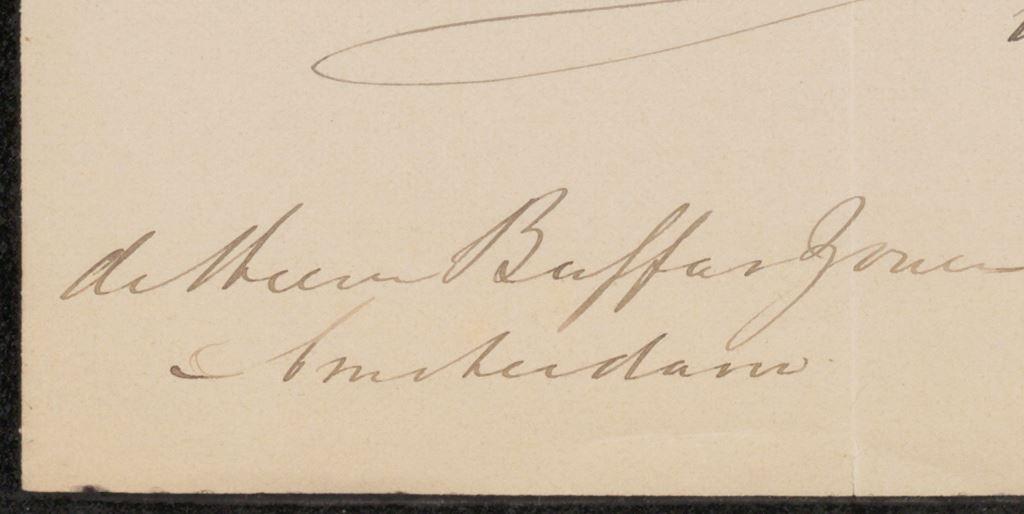 de Heeren Buffa & Zonen
Amsterdam